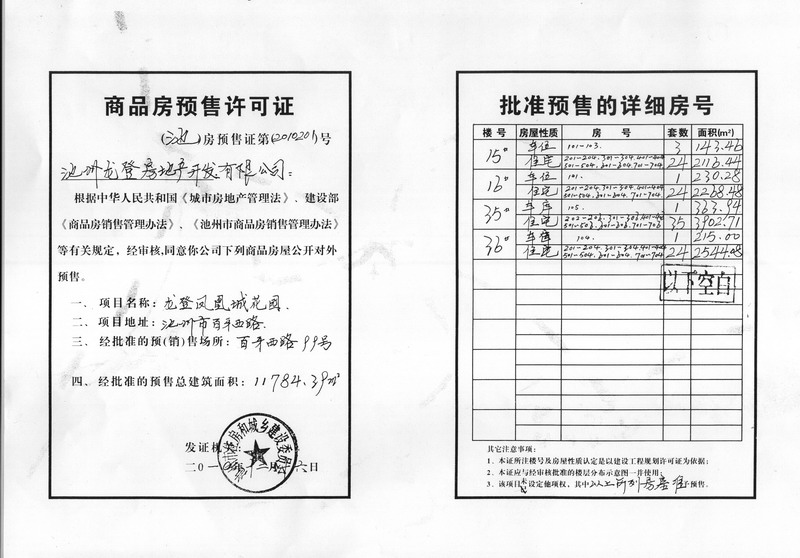 商品房预售许可证
(池)房预售证第(2010201)号
池州龙登房地产开发有限公司:
根据中华人民共和国《城市房地产管理法》、建设部
《商品房销售管理办法》、《池州市商品房销售管理办法》
等有关规定，经审核,同意你公司下列商品房屋公开对外
预售。
一、项目名称：龙登凤凰城花园.
二、项目地址：池州市百牙西路.
三、经批准的预(销)售场所：百牙西路99号
四、经批准的预售总建筑面积：11784.39m²
发证机
房和城乡建设委员会
二〇一 六日
批准预售的详细房号
楼号 房屋性质 房号 套数 面积(m²)
15# 车位 101-103. 3 143.46
住宅 201-204.301-304.401-404 501-504.601-604.701-704 24 2116.44
16# 车位 101. 1 230.28
住宅 201-204.301-304.401-404 501-504.601-604.701-704 24 2268.48
35# 车库 105. 1 363.94
住宅 35 3902.71
36# 车库 104. 1 215.00
住宅 201-204.301-304.401-404 501-504.601-604.701-704 24 2544.08
以下空白
其它注意事项：
1．本证所注楼号及房屋性质认定是以建设工程规划许可证为依据；
2．本证应与经审核批准的楼层分布示意图一并使用；
3．该项目未设定他项权，其中以上所列房屋准予预售。